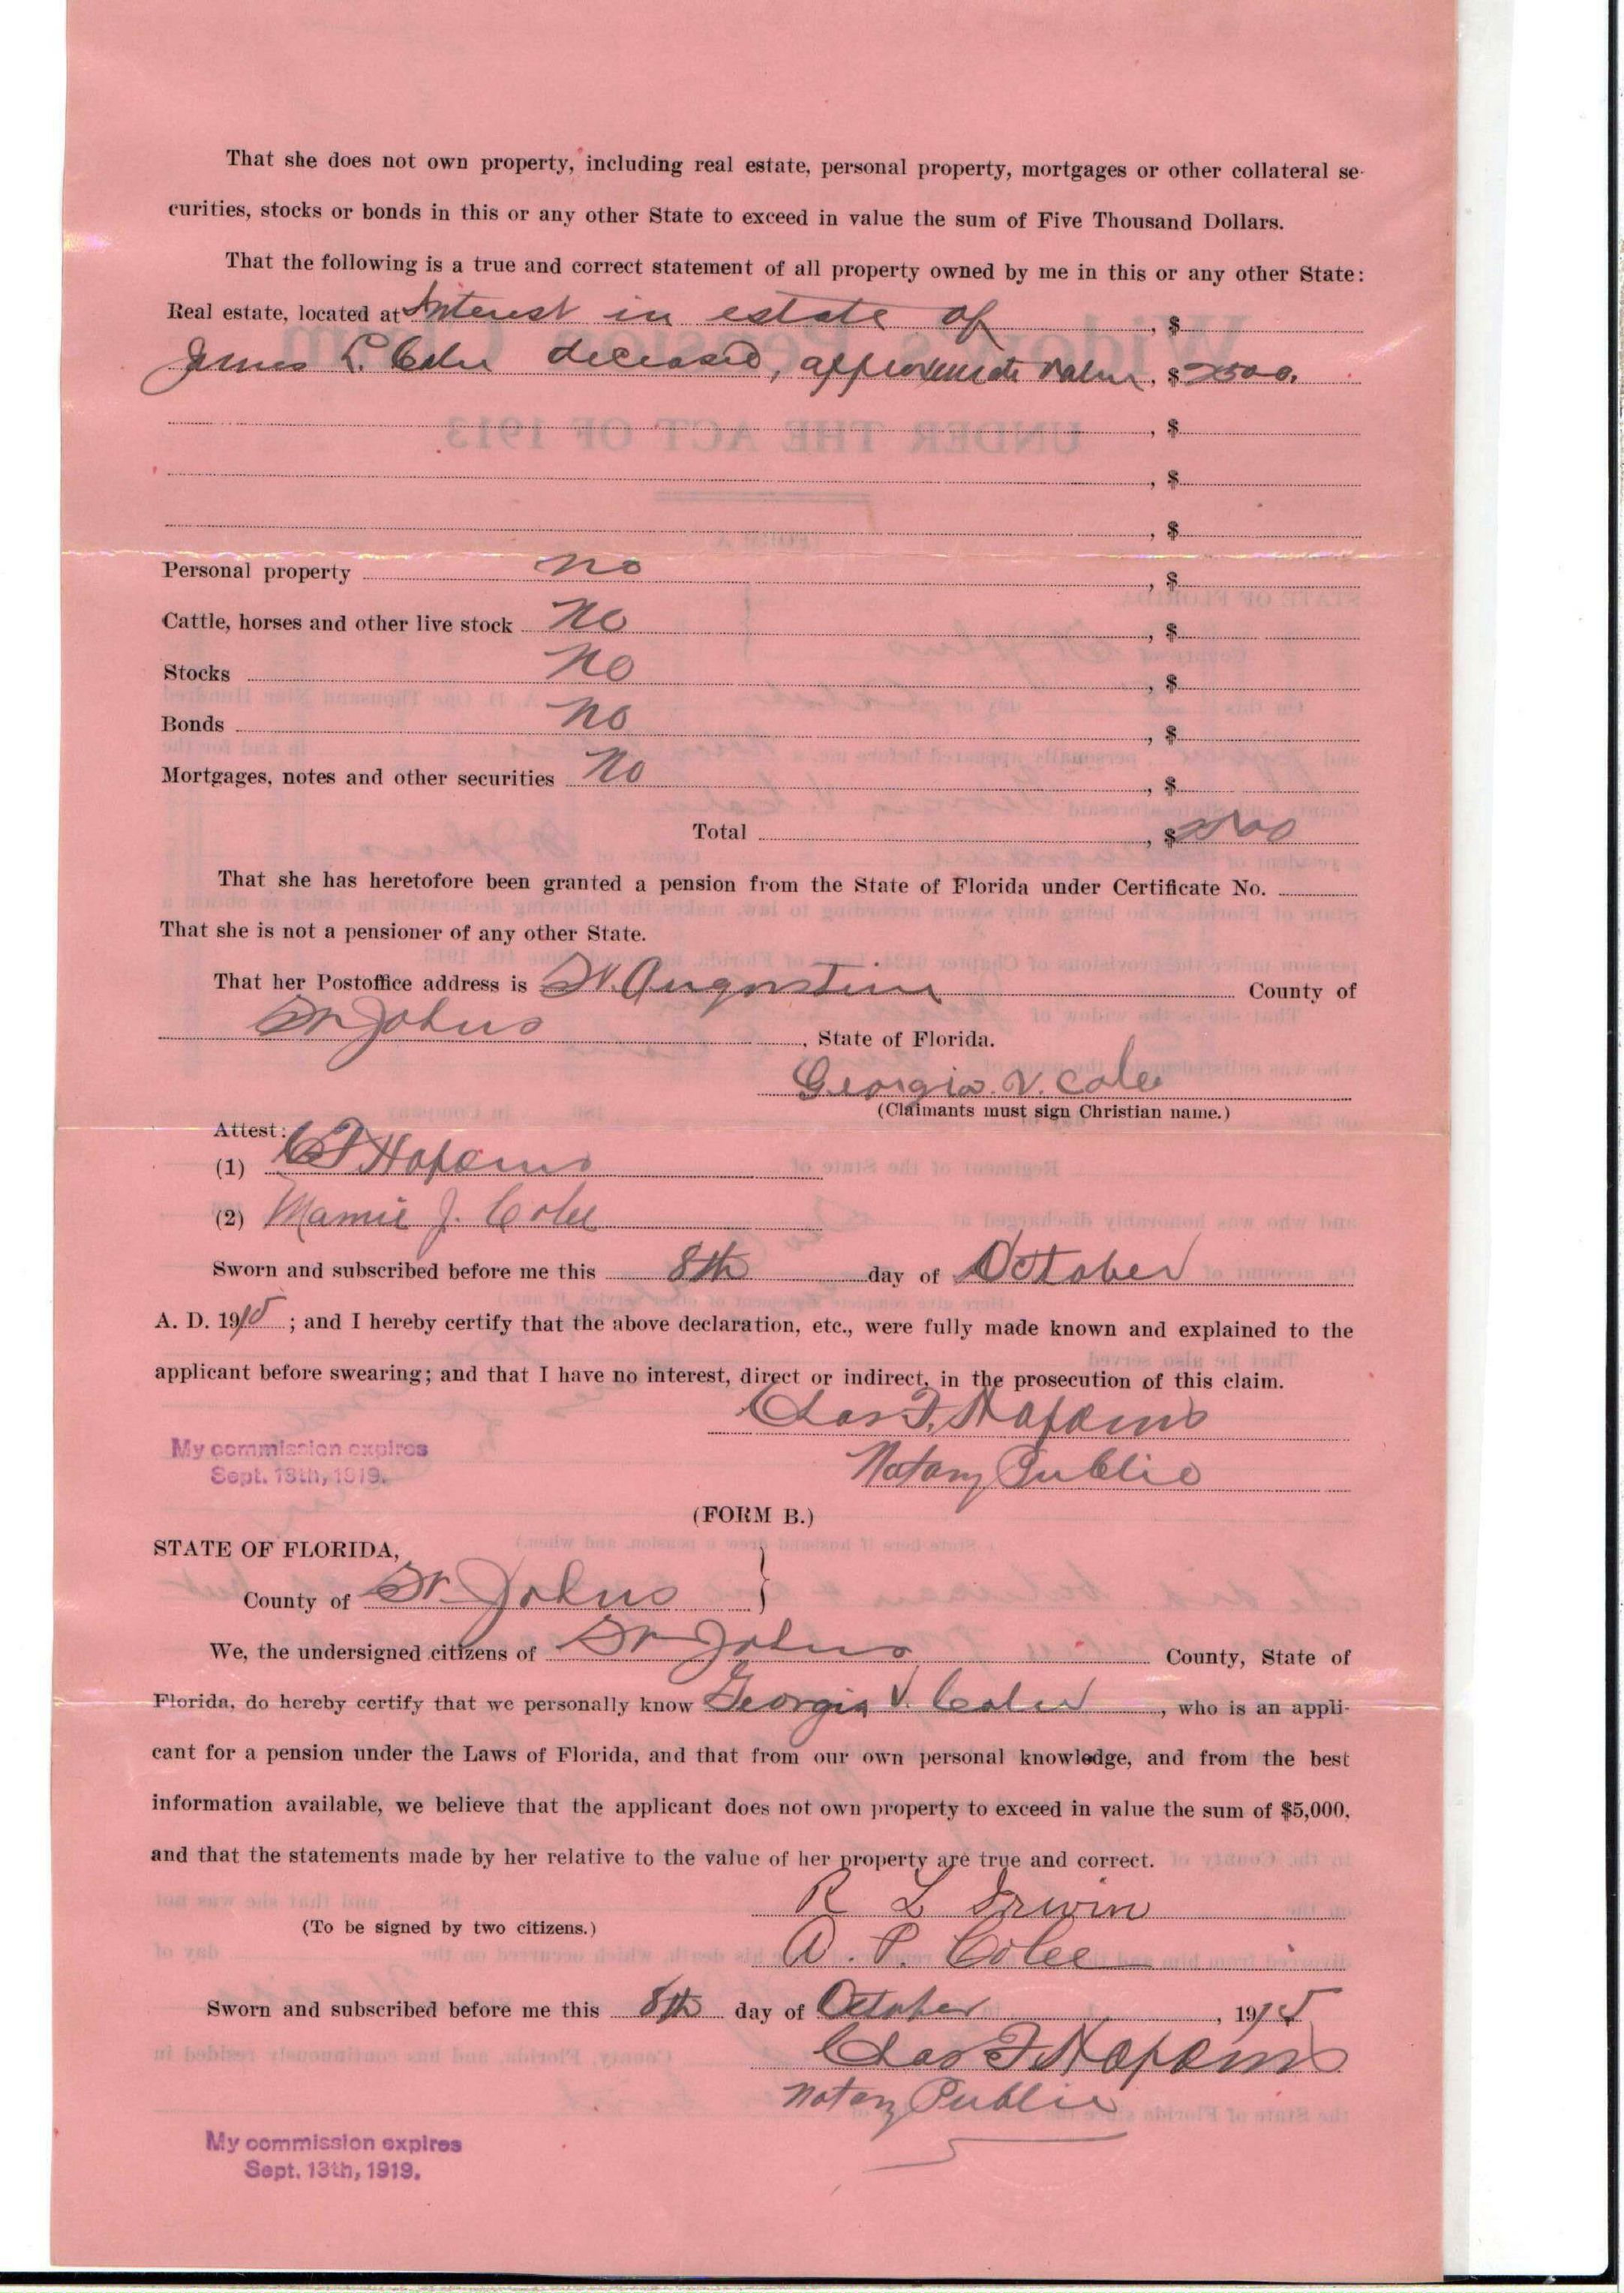 That she does not own property, including real estate, personal property, mortgages or other collateral se-
curities, stocks or bonds in this or any other State to exceed in value the sum of Five Thousand Dollars.
That the following is a true and correct statement of all property owned by me in this or any other State:
Real estate, located at Interest in estate of , $
James L. Colee deceased, approximate value , $ 2500.
, $
, $
, $
Personal property no , $
Cattle, horses and other live stock no , $
Stocks no , $
Bonds no , $
Mortgages, notes and other securities no , $
Total , $ 2500
That she has heretofore been granted a pension from the State of Florida under Certificate No.
That she is not a pensioner of any other State.
That her Postoffice address is St. Augustine County of
St Johns , State of Florida.
Georgia. V. Colee
(Claimants must sign Christian name.)
Attest:
(1) C F Hopkins
(2) Mamie J. Colee
Sworn and subscribed before me this 8th day of October
A. D. 1915 ; and I hereby certify that the above declaration, etc., were fully made known and explained to the
applicant before swearing; and that I have no interest, direct or indirect, in the prosecution of this claim.
Chas F. Hopkins
Notary Public
My commission expires
Sept. 13th, 1919.
(FORM B.)
STATE OF FLORIDA,
County of St. Johns }
We, the undersigned citizens of St Johns County, State of
Florida, do hereby certify that we personally know Georgia V. Colee , who is an appli-
cant for a pension under the Laws of Florida, and that from our own personal knowledge, and from the best
information available, we believe that the applicant does not own property to exceed in value the sum of $5,000,
and that the statements made by her relative to the value of her property are true and correct.
R L Irwin
(To be signed by two citizens.)
A. P. Colee
Sworn and subscribed before me this 8th day of October , 1915
Chas F. Hopkins
Notary Public
My commission expires
Sept. 13th, 1919.